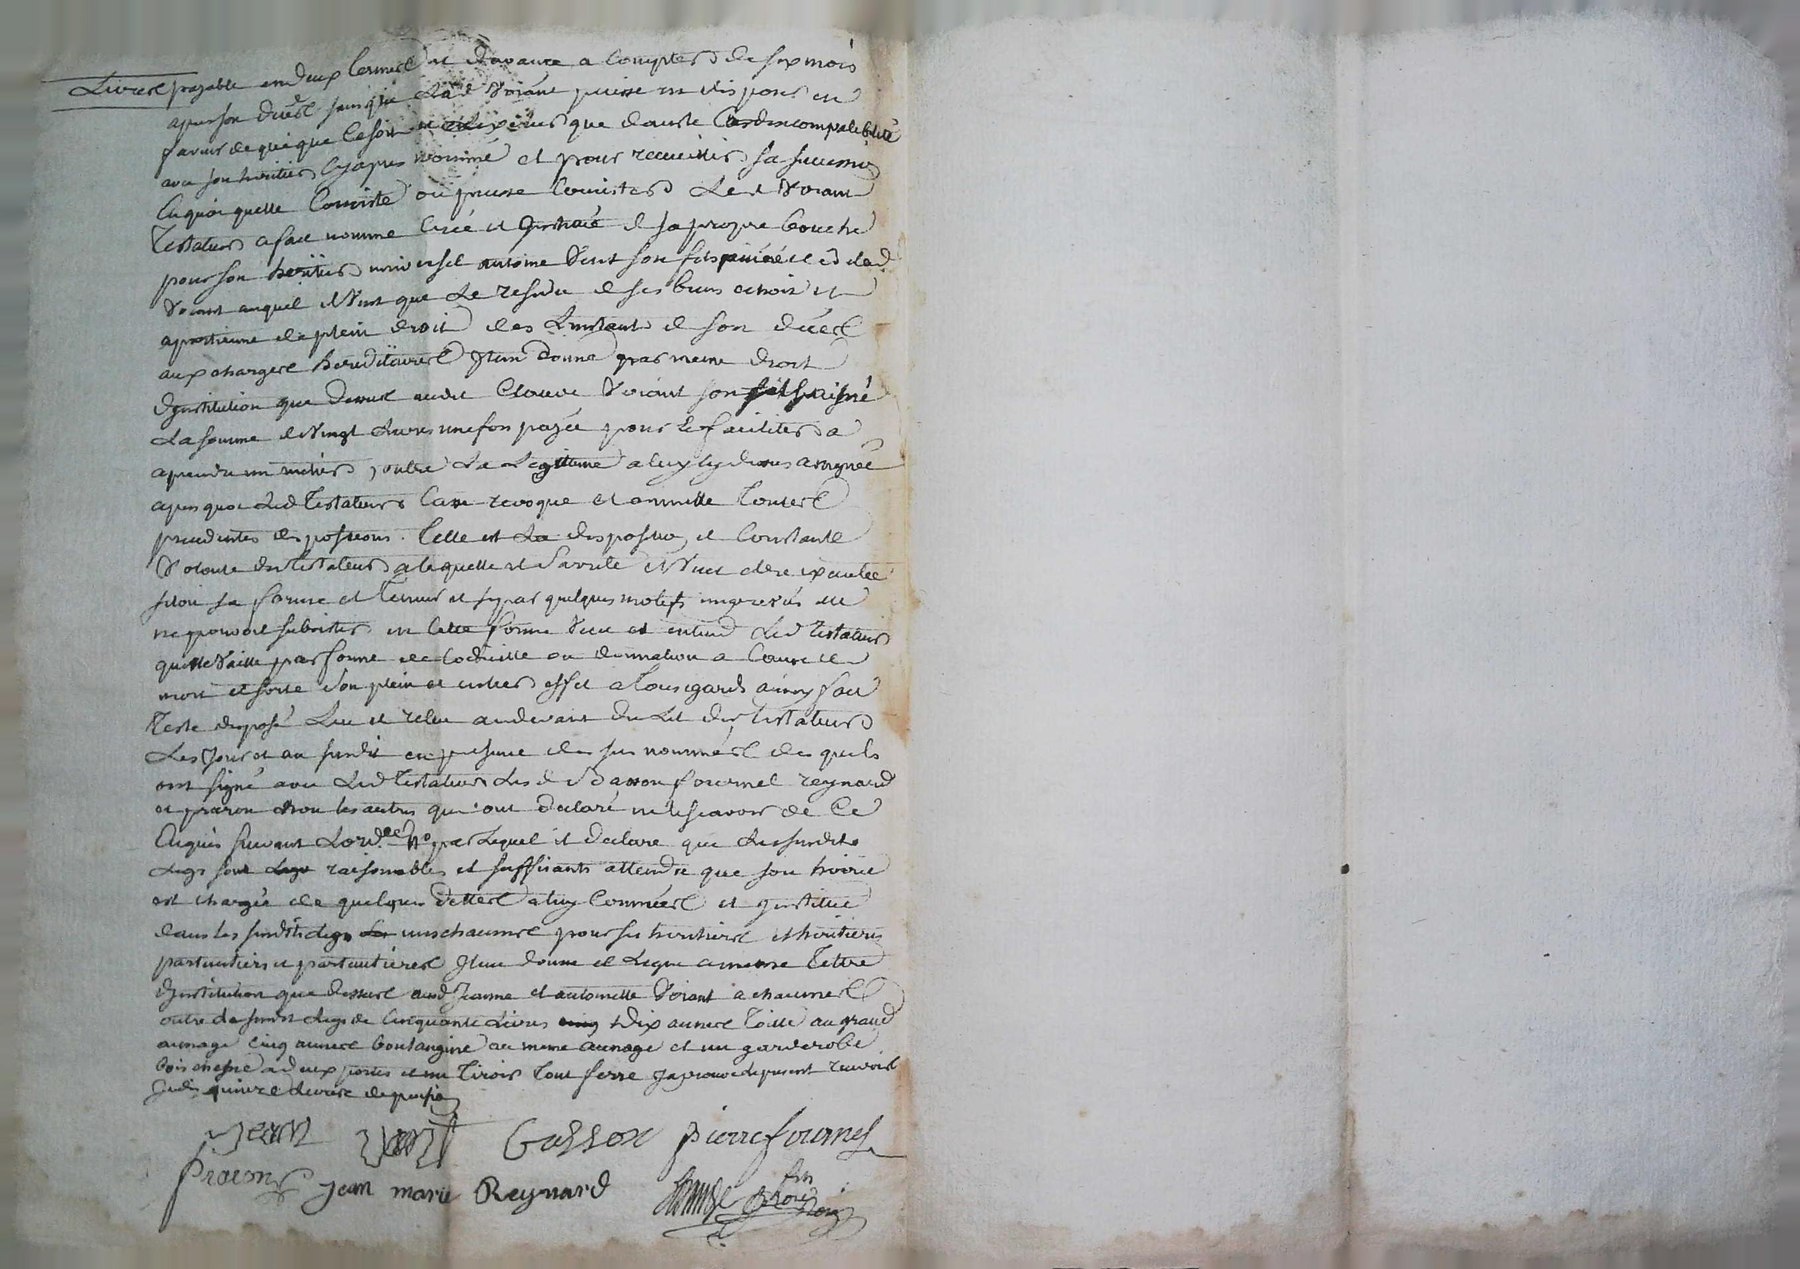 Livres payable en deux termes et d'avance a compter de six mois
apres son deces sans que lad Voirant puisse en disposer en
faveur de qui que ce soit que dans le Cas dincompatibilité
avec son heritier Cy apres nommé et pour recueillir sa succession
En quoi quelle Consiste ou puisse Consister Led Voirant
Testateur a fait nommé Créé et Institué de sa propre bouche
pour son heritier universel antoine son fils et de lad
Voirant auquel il Veut que Le residu de ses biens echoit et
apartienne de plein droit des Linstant de son déces
aux charges hereditaires Item donne par meme droit
dinstitution que dessus audit Claude Voirant son fils puisné
La somme de Vingt Livres une fois payée pour le faciliter a
aprendre un metier, outre La Legitime a luy cy dessus assignée
apres quoi Led Testateur Casse revoque et annulle Toutes
precedentes dispositions. Telle est La disposition et Constante
Volonté du Testateur a laquelle il Sarrete et Veut etre executée
selon sa forme et Teneur et sy par quelques motifs elle
ne pouvoit subsister en Cette forme Veut et entend Led Testateur
quelle Vaille par forme de Codicille ou donnation a Cause de
mort et sorte son plein et entier effet a Tous egards ainsy fait
Testé disposé Lu et relu audevant du Lit du Testateur
Les Jour et an susdit en presence des sus nommés desquels
ont signé avec Led Testateur Les d Basson fournel reynard
et praron non les autres qui ont declaré ne le scavoir de Ce
Enquis suivant Lord.ce par Lequel il declare que Les susdits
Legs sont raisonables et suffisants attendre que son hoirie
est chargée de quelques dettes a luy Connües et institue
dans les susdits Legs uns chacuns pour ses heritiers et heritieres
particuliers et particulieres Item donne et Legue a meme Titre
dinstitution que dessus aud Jeanne et antoinette Voirant a chacunes
outre Le susdit Legs de Cinquante Livres dix aunes Toille au grand
aunage Cinq aunes boulangine au meme aunage et un garderobe
bois chesne a deux portes et un Tiroir Tout ferré
quinze Livres de
Jean Basson pierre fournel
Praron Jean marie Reynard